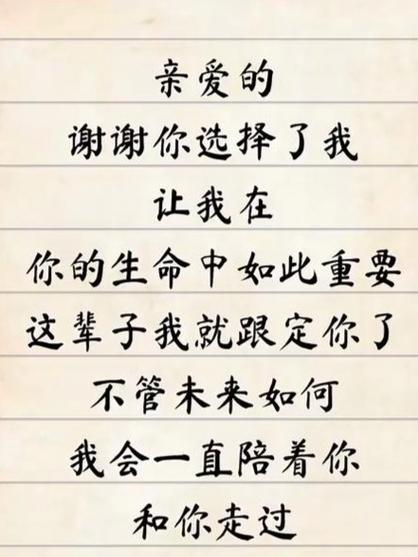 亲爱的
谢谢你选择了我
让我在
你的生命中如此重要
这辈子我就跟定你了
不管未来如何
我会一直陪着你
和你走过